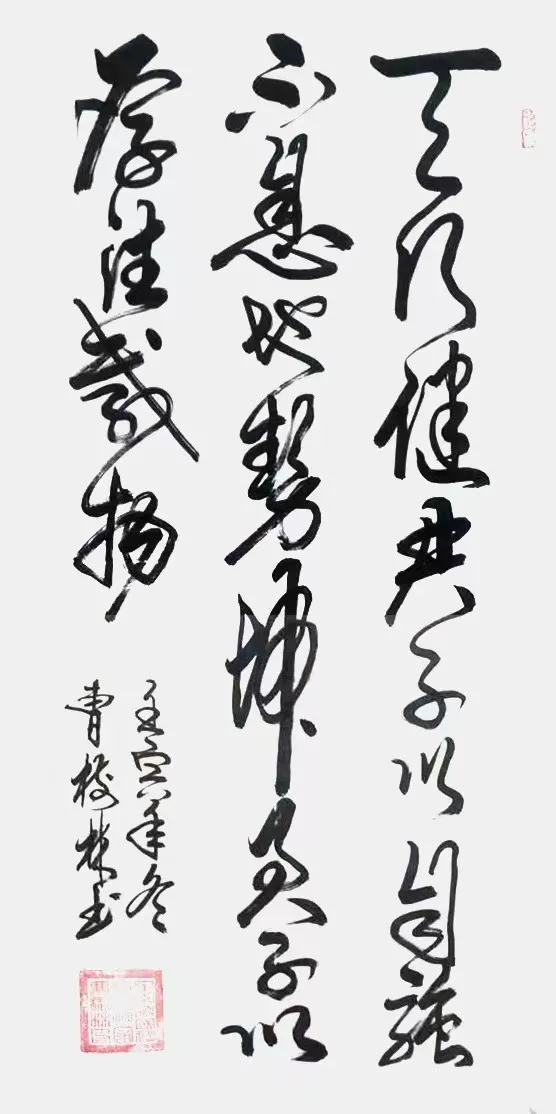 天行健君子以自强
不息地势坤君子以
厚德载物
壬寅年冬
曹楼林书